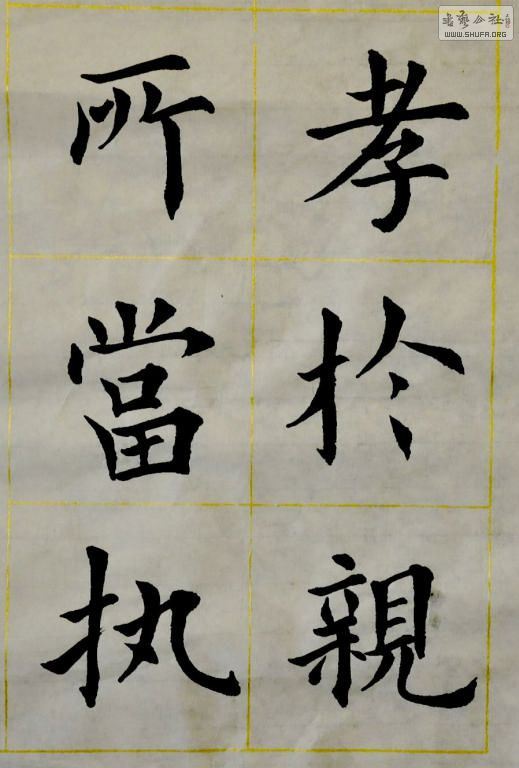 孝於親
所當执
书艺公社
WWW.SHUFA.ORG